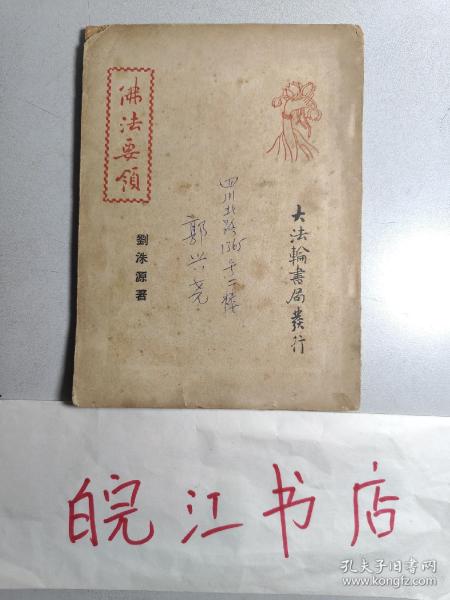 佛法要領
劉洙源著
四川北路1365号二楼
郭兴尧
大法輪書局發行
皖江书店
孔夫子旧书网
www.kongfz.com